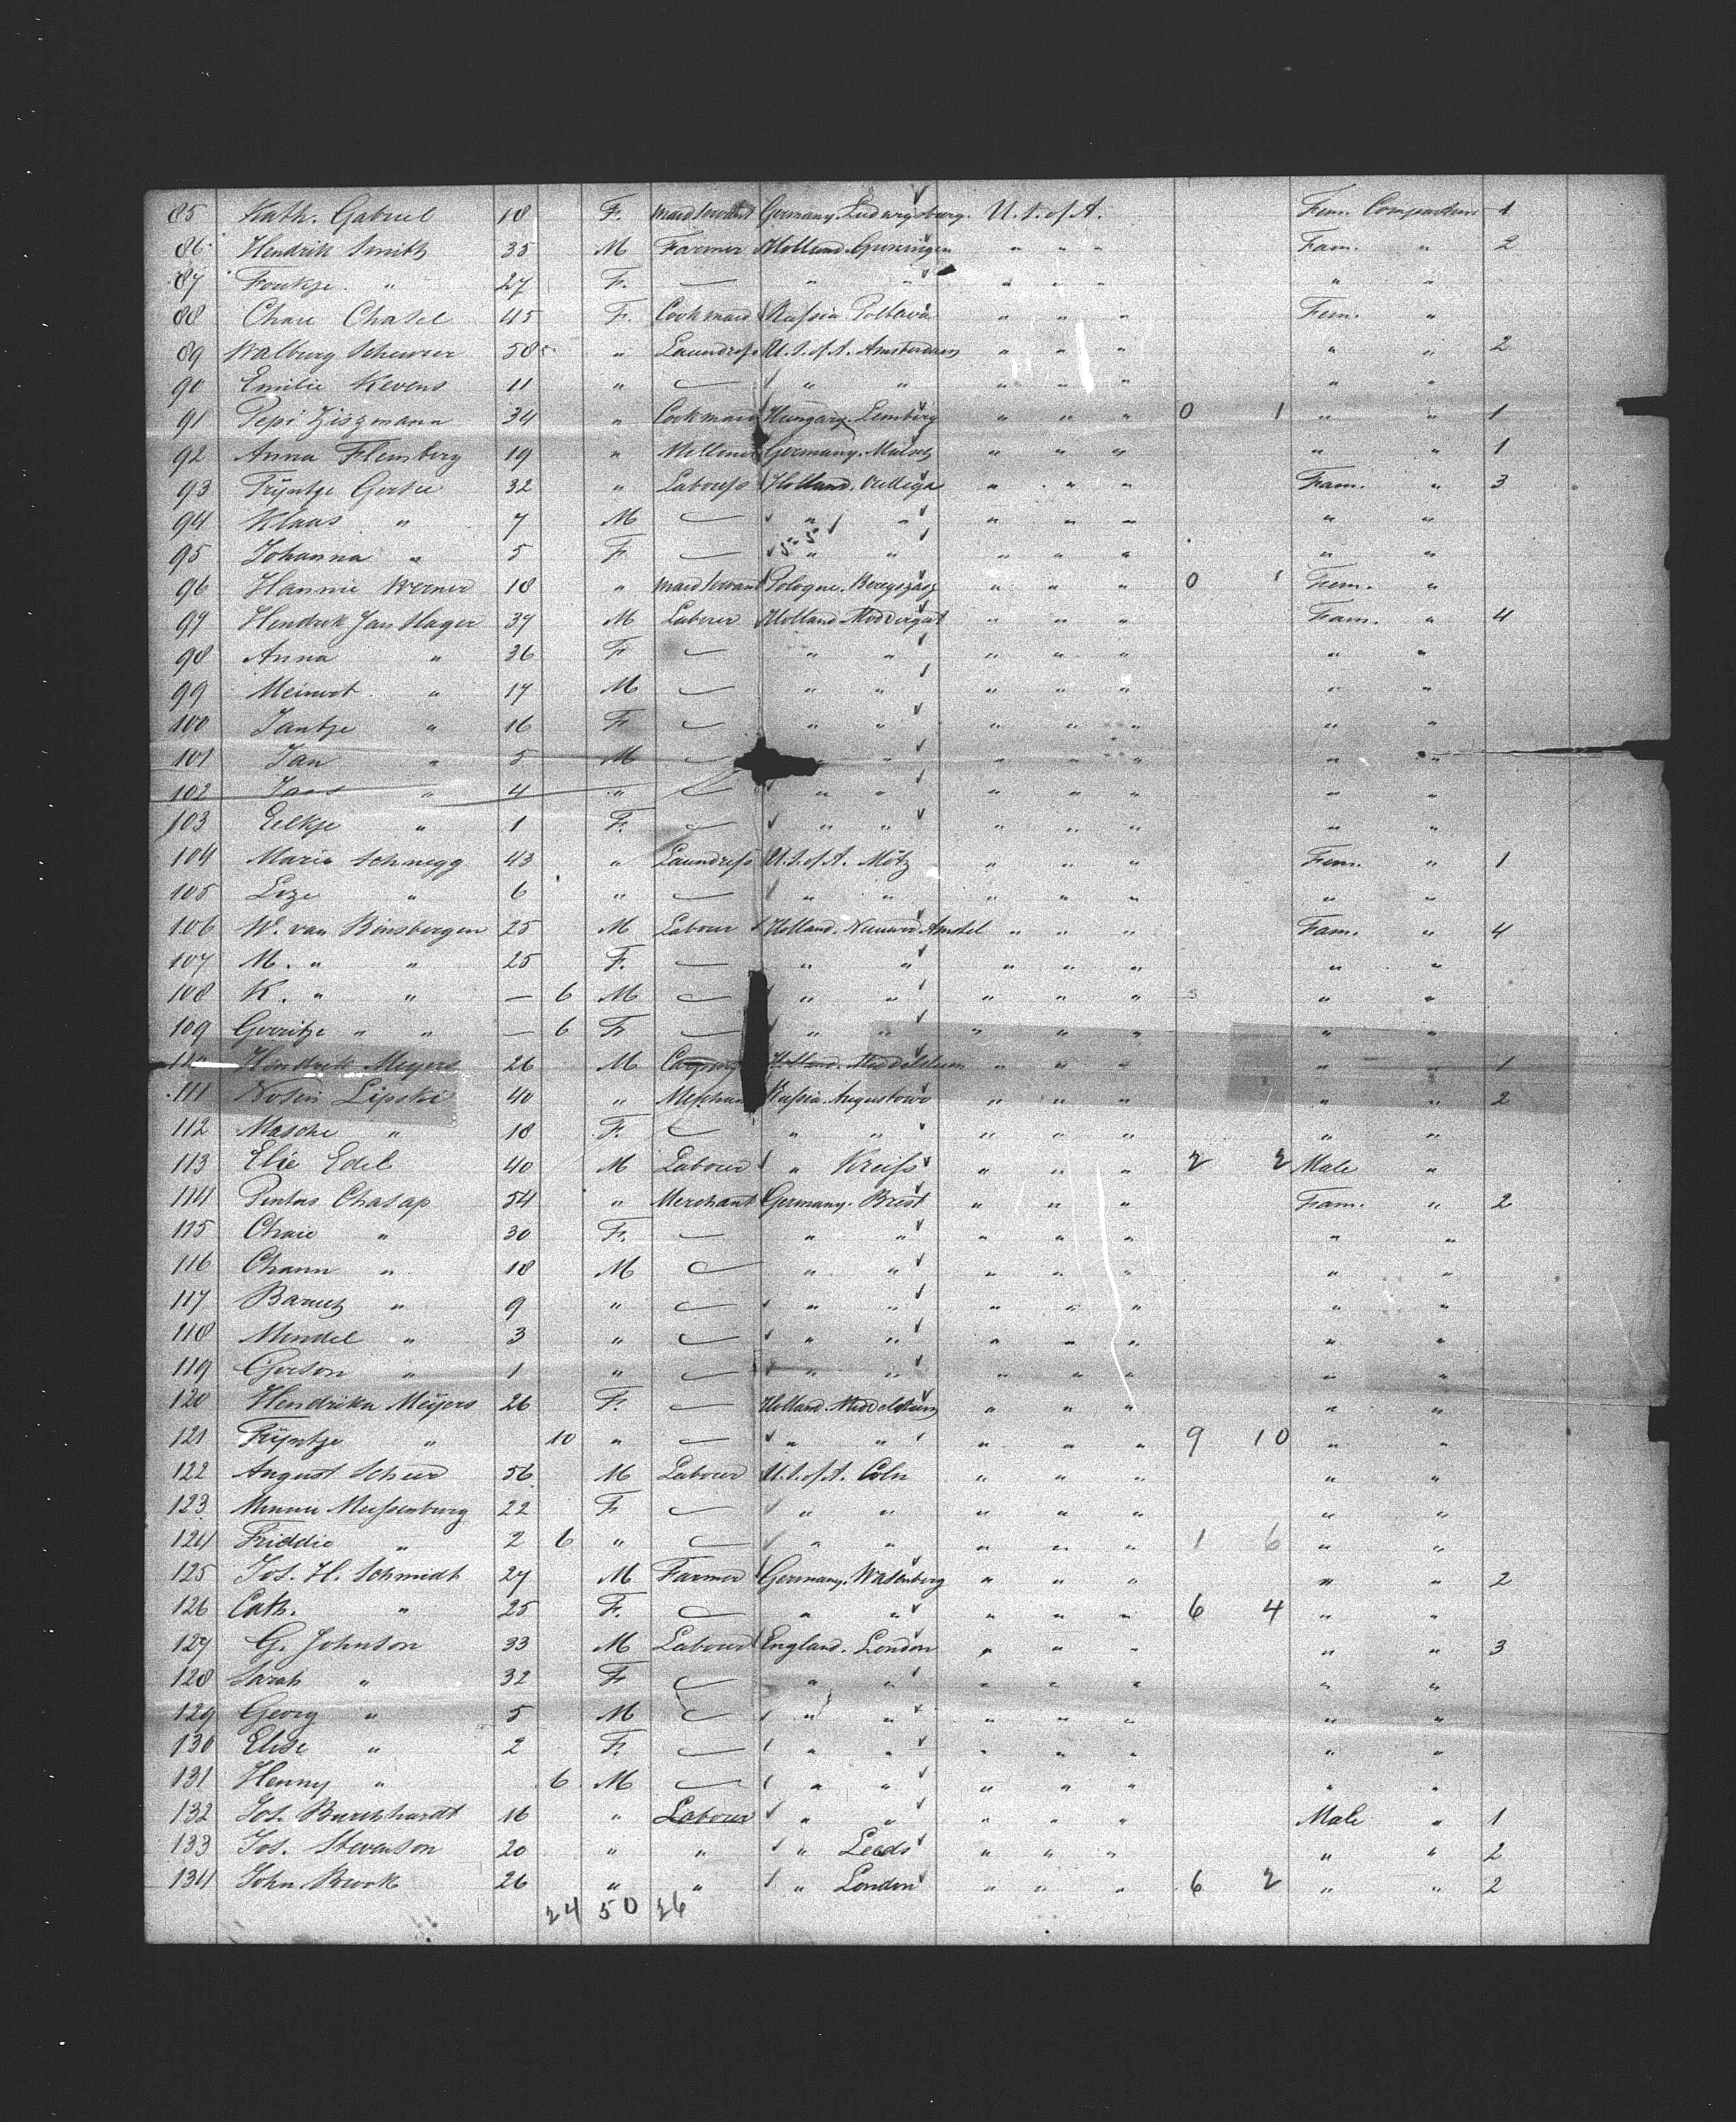 85 Kath. Gabriel 18 F. Maid servant Germany. Ludwigsburg. U. S. of A. Fem. Compartm 1
86 Hendrik Smith 35 M Farmer Holland. Groningen " " " Fam. " 2
87 Foukje " 27 F. — " " " " " " "
88 Chaie Chasel 45 F. Cook maid Russia Poltava " " " Fem. "
89 Walburg Scheurer 58 " Laundress U. S. of A. Amsterdam " " " " " 2
90 Emilie Kevens 11 " — " " " " " " "
91 Pepi Ziszmann 34 " Cook maid Hungary. Lemberg " " " 0 1 " " 1
92 Anna Flensberg 19 " Germany. " " " " " 1
93 Trÿntje 32 " Labouress Holland. " " " Fam. " 3
94 Klaas " 7 M — " " " " " " "
95 Johanna " 5 F. — " " " " " " "
96 Hannie Werner 18 " Maid servant Pologne. " " " 0 1 Fem. "
97 Hendrik Jan Hager 37 M Labour Holland " " " Fam. " 4
98 Anna " 36 F. — " " " " " " "
99 Meindert " 17 M — " " " " " " "
100 Jantje " 16 F. — " " " " " " "
101 Jan " 5 M — " " " " " "
102 " 4 " — " " " " " " "
103 Eelkje " 1 F. — " " " " " " "
104 Marie Schnegg 43 " Laundress U. S. of A. Mötz " " " Fem. " 1
105 Lize " 6 " — " " " " " " "
106 W. van Binsbergen 25 M Labour Holland. Nieuwer Amstel " " " Fam. " 4
107 M. " " 25 F. — " " " " " " "
108 K. " " — 6 M — " " " " " " "
109 Gerritje " " — 6 F. — " " " " " " "
110 Hendrik Meyers 26 M Holland. Middelstum " " " " " 1
111 Lipski 40 " Merchant Russia Augustowo " " " " " 2
112 Masche " 18 F. — " " " " " " "
113 Elie Edel 40 M Labour " Kreiss " " " 2 2 Male "
114 Pintas Chasap 54 " Merchant Germany. Brest " " " Fam. " 2
115 Chaie " 30 F. — " " " " " " "
116 Chann " 18 M — " " " " " " "
117 Baruch " 9 " — " " " " " " "
118 Mendel " 3 " — " " " " " " "
119 Gerson " 1 " — " " " " " " "
120 Hendrika Meÿers 26 F. — Holland. Middelstum " " " " "
121 Trÿntje " 10 " — " " " " " 9 10 " "
122 August Scheer 56 M Labour U. S. of A. Cöln " " " " "
123 Minnie Meissenburg 22 F. — " " " " " " "
124 Friddie " 2 6 " — " " " " " 1 6 " "
125 Jos. H. Schmidt 27 M Farmer Germany. Wasenberg " " " " " 2
126 Cath. " 25 F. — " " " " " 6 4 " "
127 G. Johnson 33 M Labour England. London " " " " " 3
128 Sarah " 32 F. — " " " " " " "
129 Georg " 5 M — " " " " " " "
130 Elise " 2 F. — " " " " " " "
131 Henny " 6 M — " " " " " " "
132 Jos. Burchhardt 16 " Labour " " " " " Male " 1
133 Jos. Stevenson 20 " " " Leeds " " " " " 2
134 John Brook 26 " " " London " " " 6 2 " " 2
24 50 26